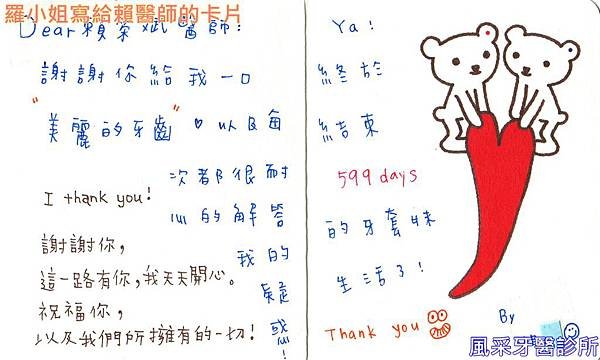 羅小姐寫給賴醫師的卡片
Dear 賴榮斌醫師:
謝謝你給我一口
"美麗的牙齒" ♡ 以及每
次都很耐
心的解答
我的
疑
惑!
I thank you!
謝謝你,
這一路有你,我天天開心。
祝福你,
以及我們所擁有的一切!
Ya!
終於
結束
599 days
的牙套妹
生活了!
Thank you
By
風采牙醫診所